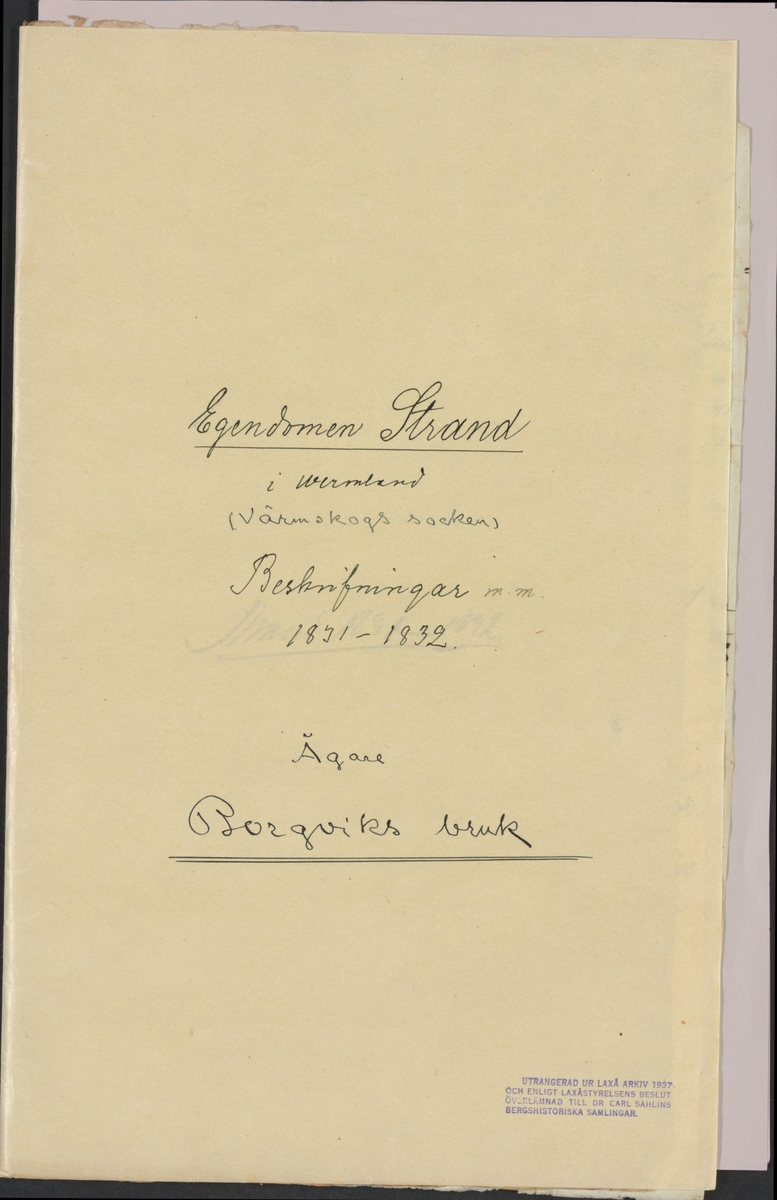 Egendomen Strand
i Wermland
(Värmskogs socken)
Beskrifningar m.m.
1831 – 1832.
Ägare
Borgviks bruk
UTRANGERAD UR LAXÅ ARKIV 1937
OCH ENLIGT LAXÅSTYRELSENS BESLUT
ÖVERLÄMNAD TILL DR CARL SAHLINS
BERGSHISTORISKA SAMLINGAR.